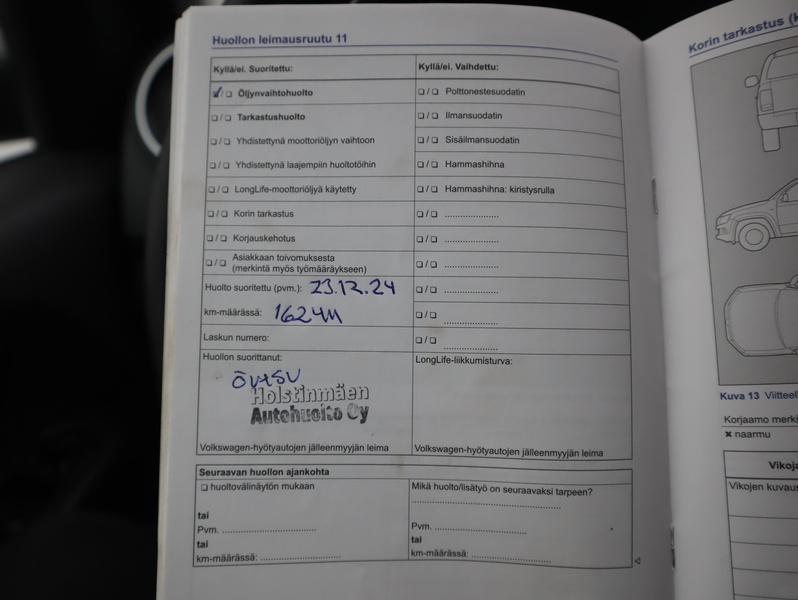 Huollon leimausruutu 11
Kyllä/ei. Suoritettu:
☑/☐ Öljynvaihtohuolto
☐/☐ Tarkastushuolto
☐/☐ Yhdistettynä moottoriöljyn vaihtoon
☐/☐ Yhdistettynä laajempiin huoltotöihin
☐/☐ LongLife-moottoriöljyä käytetty
☐/☐ Korin tarkastus
☐/☐ Korjauskehotus
☐/☐ Asiakkaan toivomuksesta
(merkintä myös työmääräykseen)
Huolto suoritettu (pvm.): 23.12.24
km-määrässä:
Laskun numero:
Huollon suorittanut:
Holstinmäen
Autohuolto Oy
Volkswagen-hyötyautojen jälleenmyyjän leima
Kyllä/ei. Vaihdettu:
☐/☐ Polttonestesuodatin
☐/☐ Ilmansuodatin
☐/☐ Sisäilmansuodatin
☐/☐ Hammashihna
☐/☐ Hammashihna: kiristysrulla
☐/☐ ....................
☐/☐ ....................
☐/☐ ....................
☐/☐ ....................
☐/☐ ....................
☐/☐ ....................
LongLife-liikkumisturva:
Volkswagen-hyötyautojen jälleenmyyjän leima
Seuraavan huollon ajankohta
☐ huoltovälinäytön mukaan
tai
Pvm. ....................
tai
km-määrässä: ....................
Mikä huolto/lisätyö on seuraavaksi tarpeen?
....................
Pvm. ....................
tai
km-määrässä: ....................
Korin tarkastus
Kuva 13
Korjaamo
✖ naarmu
Vikojen